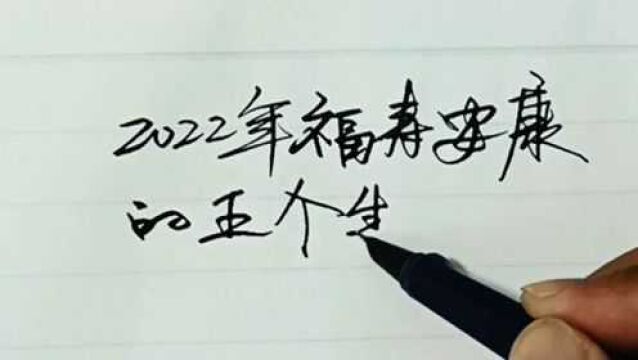 2022年福寿安康
的五个生